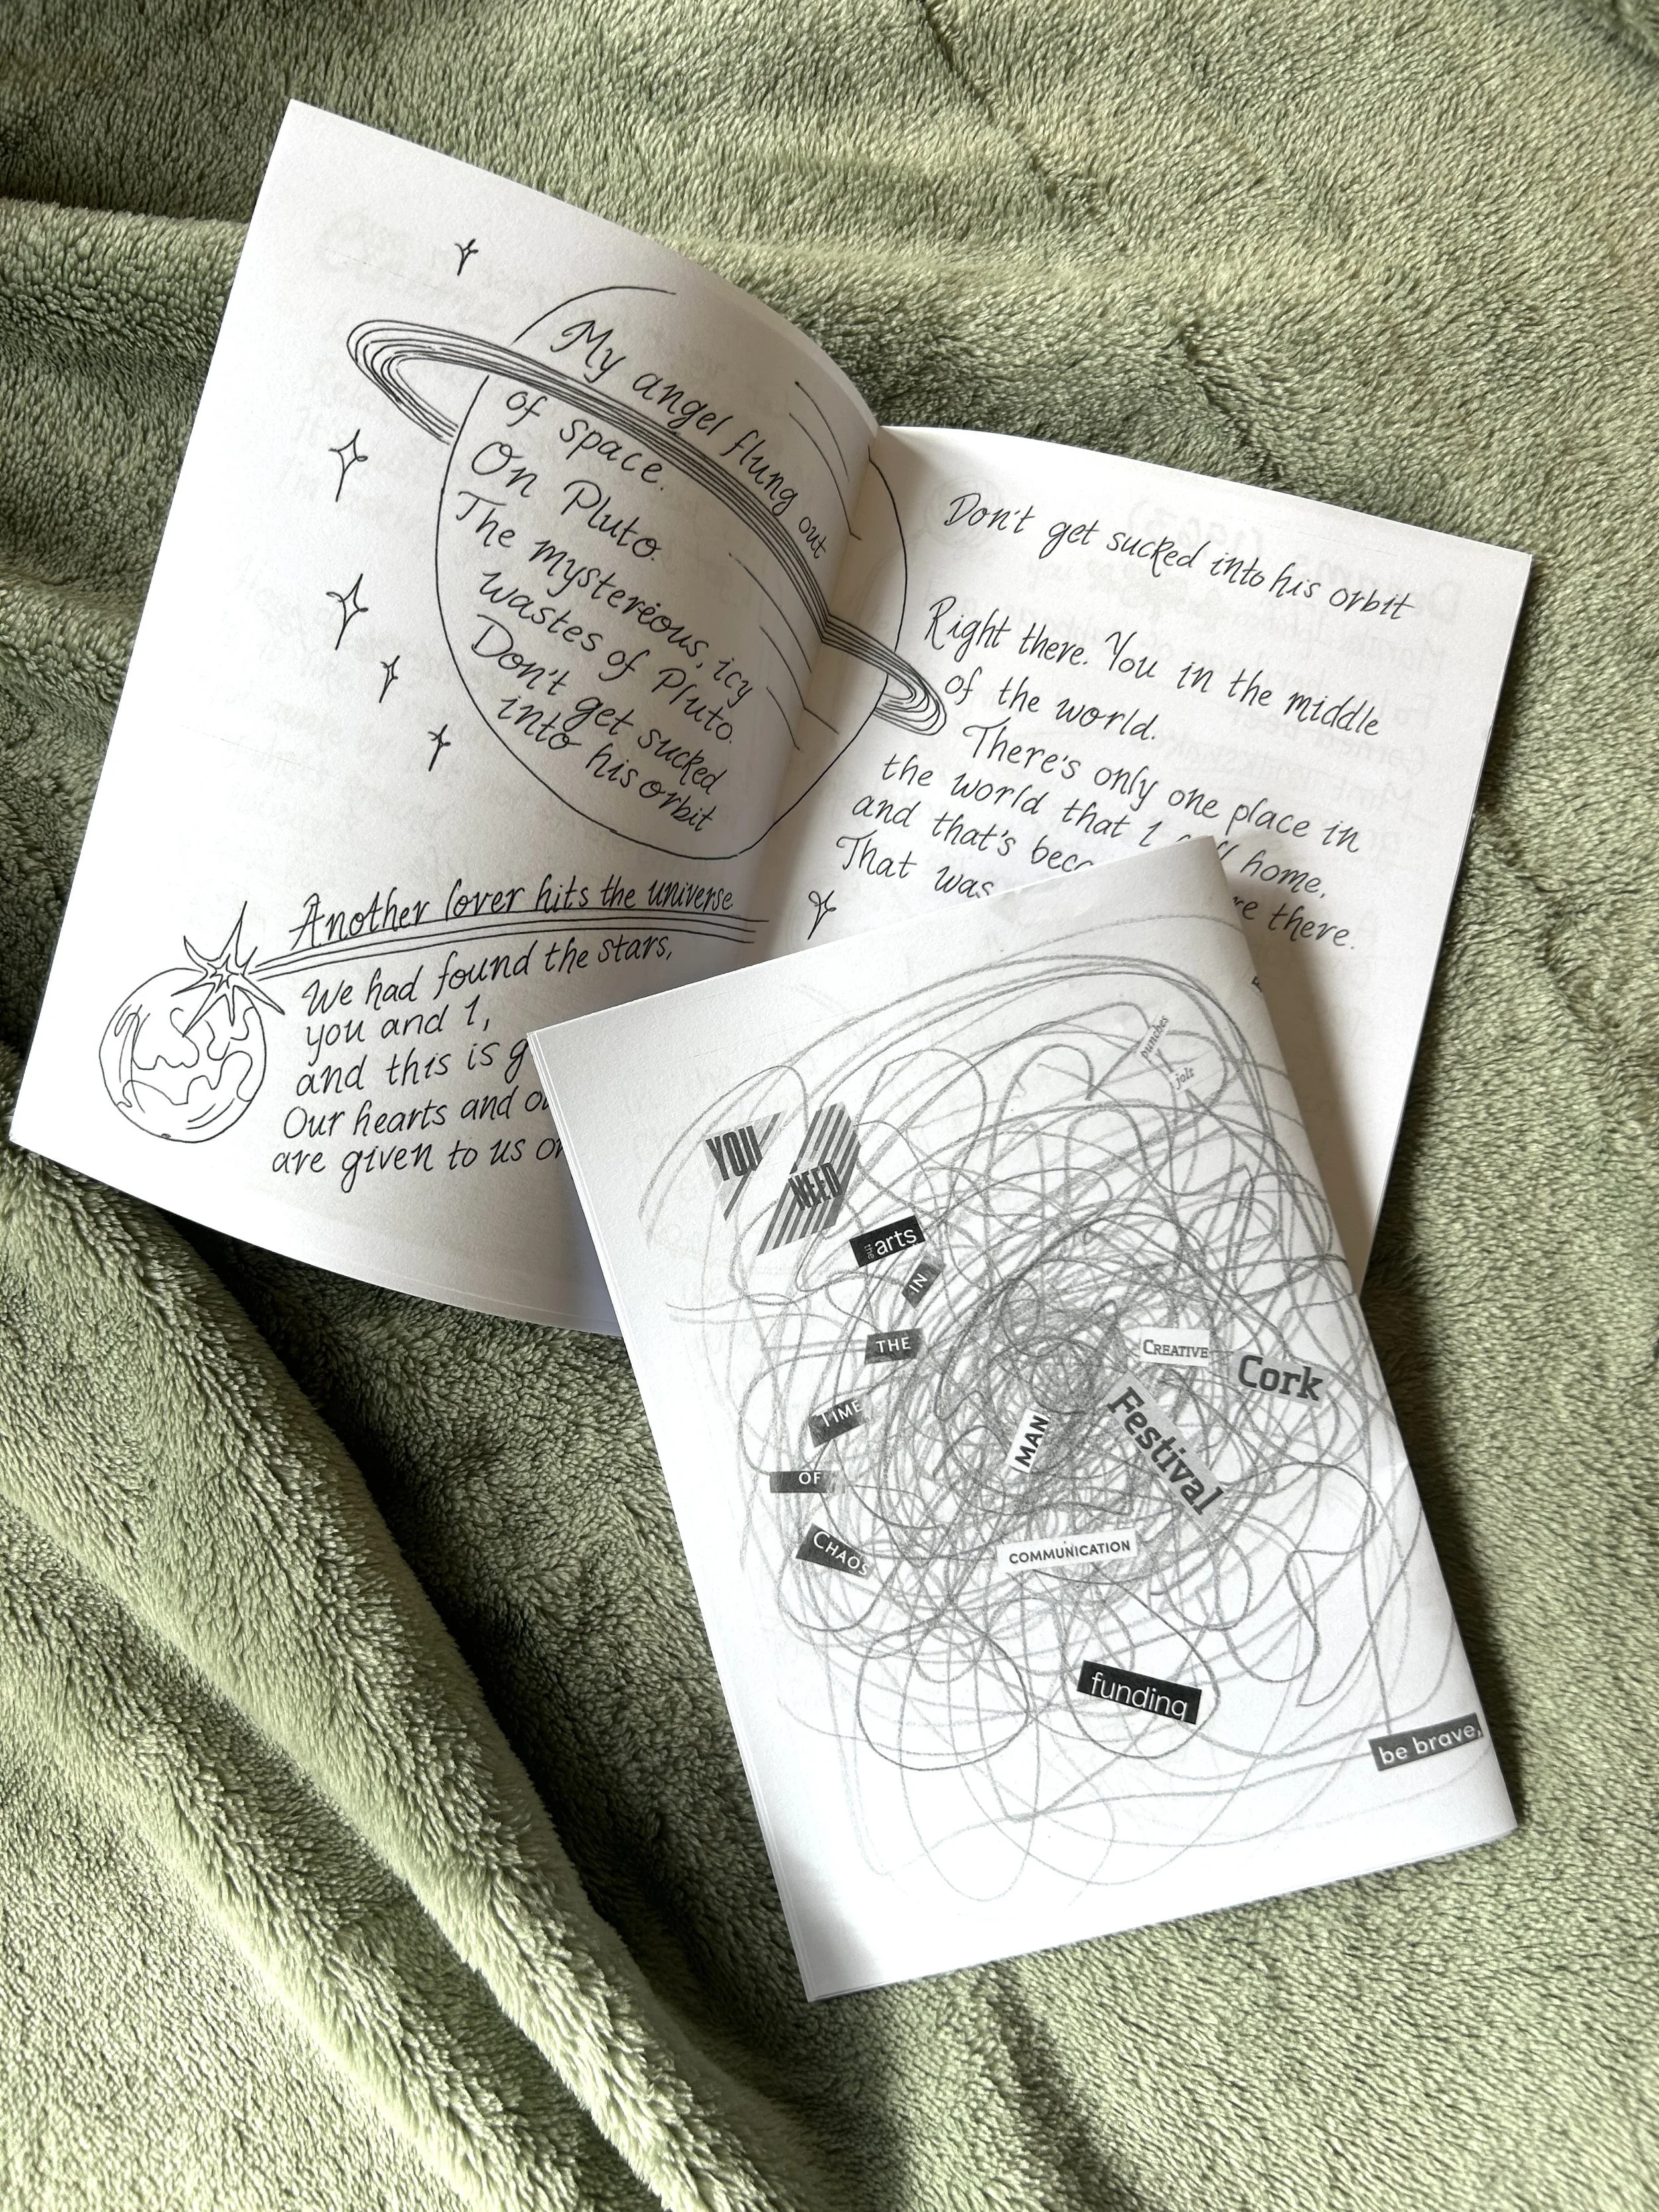 My angel flung out
of space.
On Pluto.
The mystereous, icy
wastes of Pluto.
Don't get sucked
into his orbit
Another lover hits the universe
We had found the stars,
you and I,
and this is
Our hearts and
are given to us
Don't get sucked into his orbit
Right there. You in the middle
of the world.
There's only one place in
the world that I home,
and that's there.
That was
punches
jolt
YOU
NEED
the arts
IN
THE
TIME
OF
CHAOS
CREATIVE
Cork
Festival
MAN
COMMUNICATION
funding
be brave,